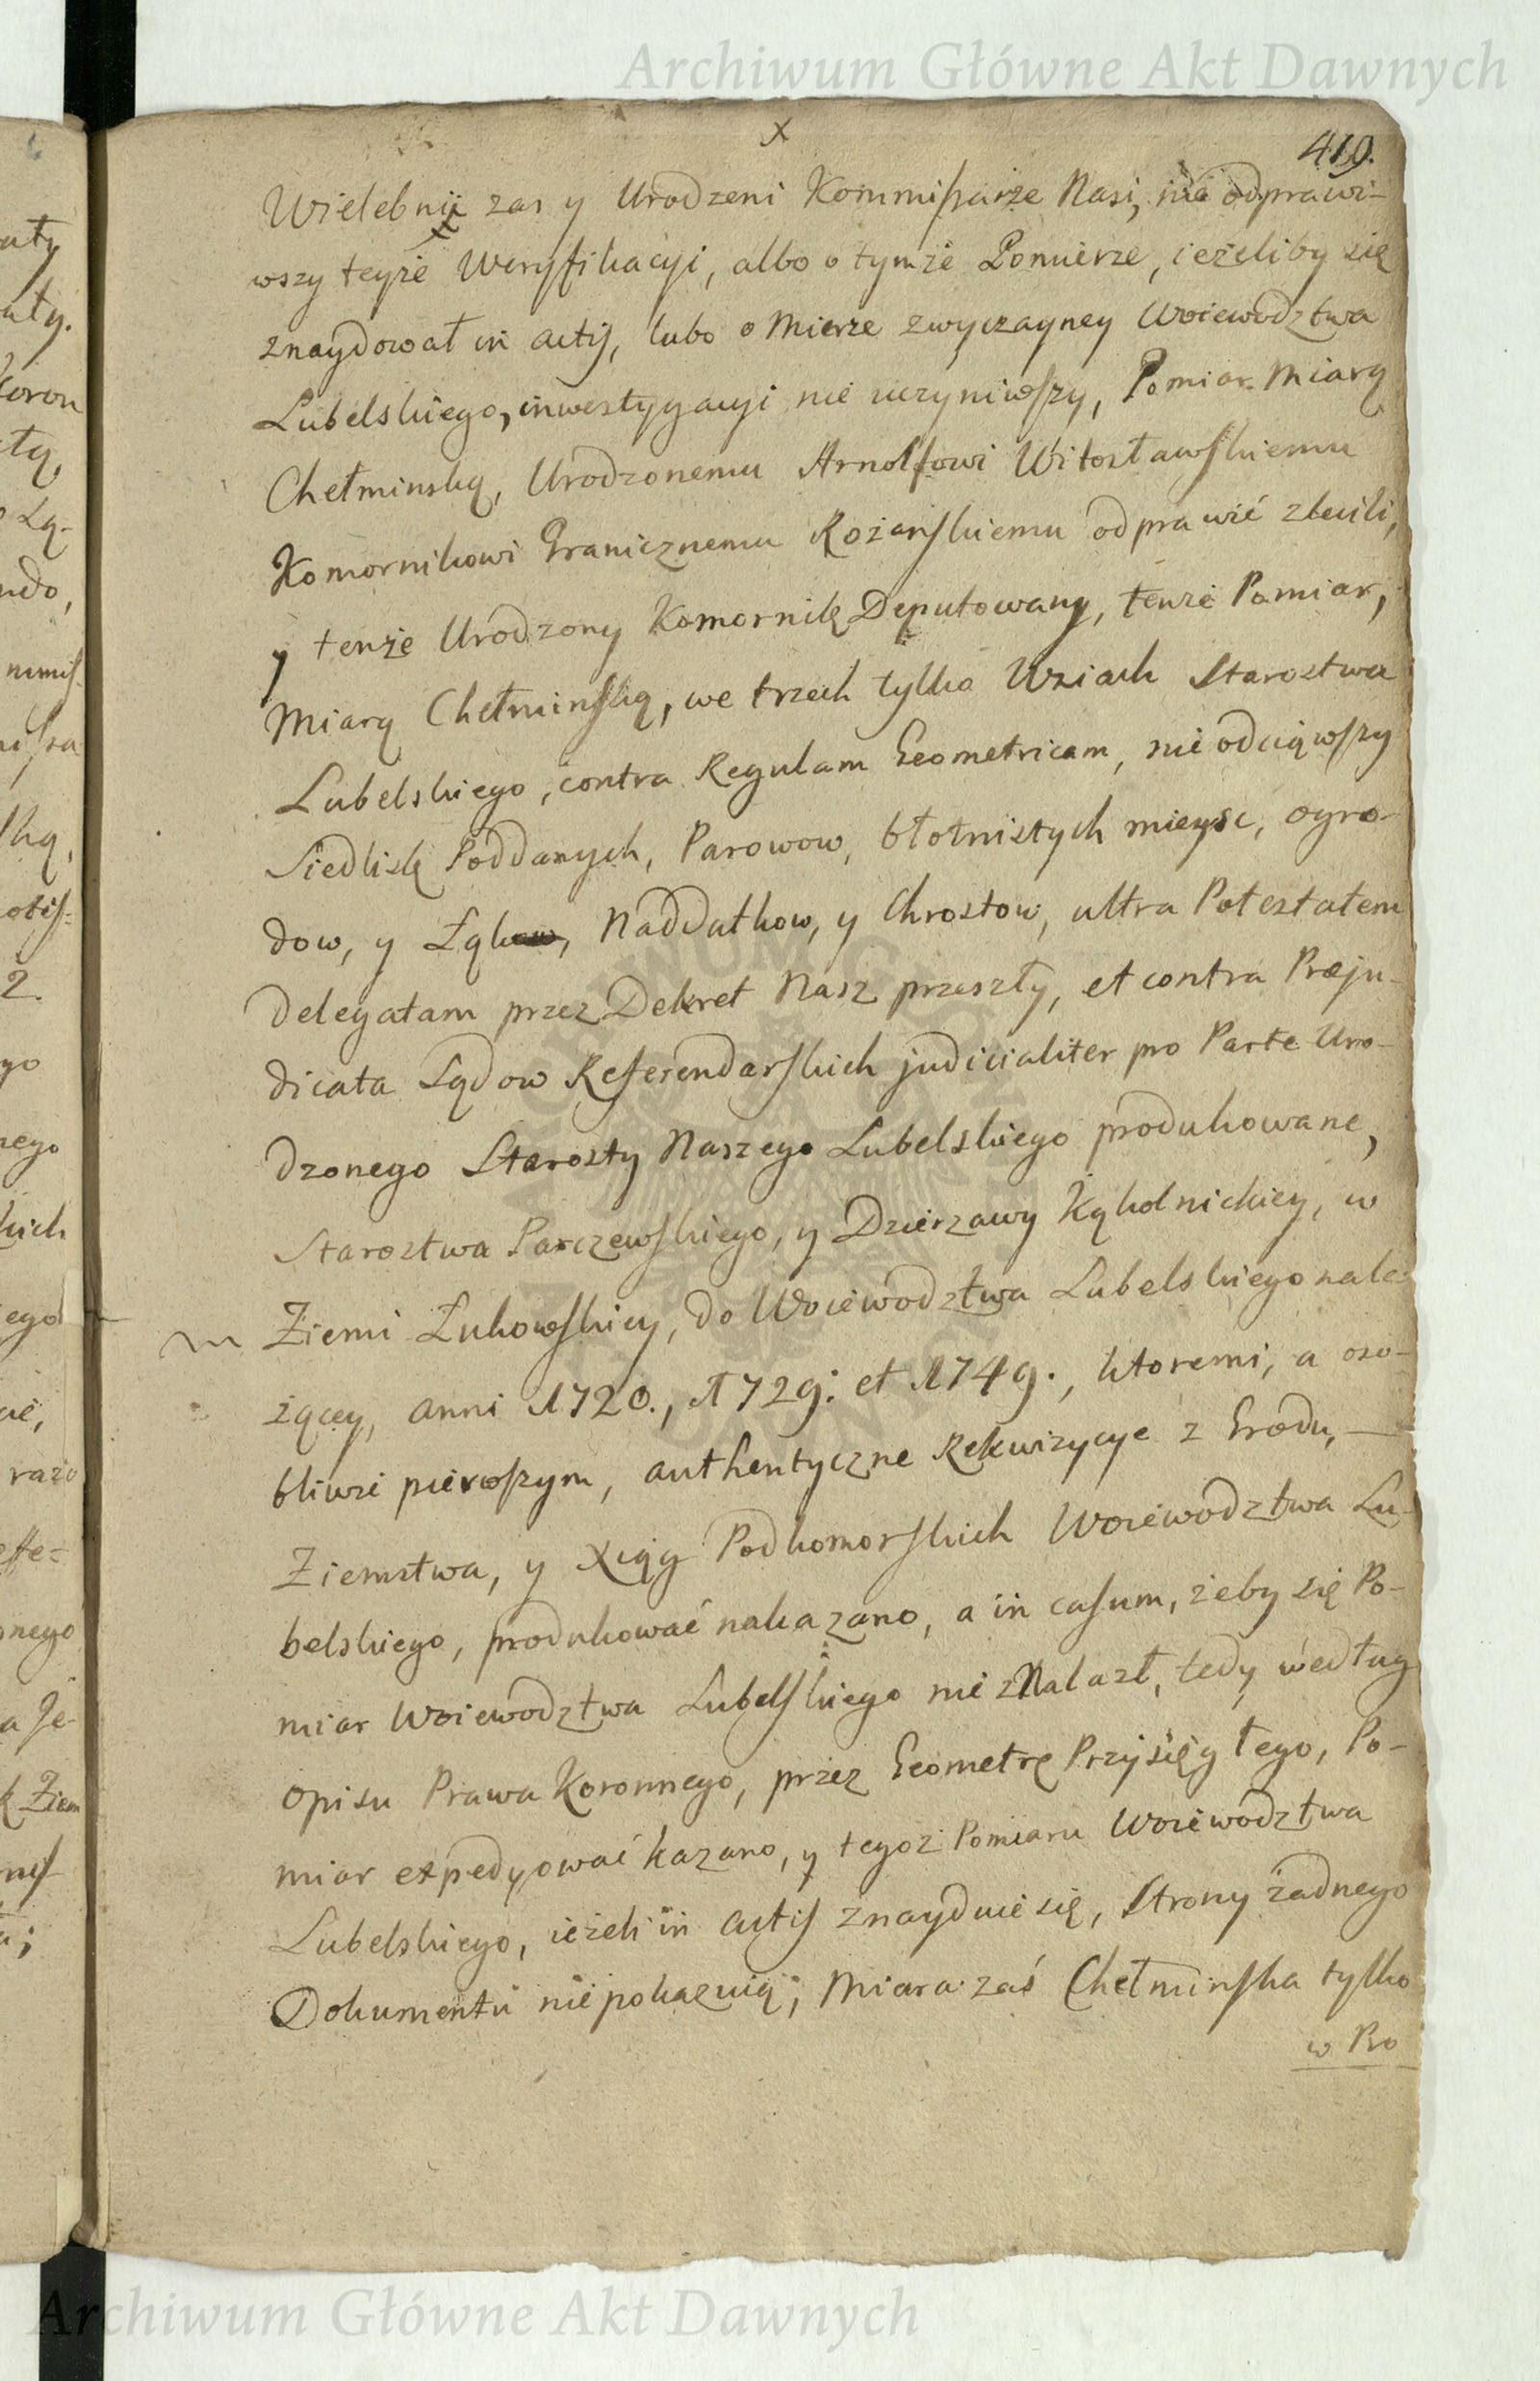 Archiwum Główne Akt Dawnych
419.
Wielebni zas y Urodzeni Kommissarze Nasi, nie odprawi-
wszy teyże Weryfikacyi, albo o tymże Pomierze, ieżeliby się
znaydował in actis, lubo o Mierze zwyczayney Woiewodztwa
Lubelskiego, inwestygacyi nie uczyniwszy, Pomiar Miarą
Chełminską, Urodzonemu Arnolfowi Witosławskiemu
Komornikowi Granicznemu Rożanskiemu odprawić zlecili,
y tenże Urodzony Komornik Deputowany, tenże Pomiar,
Miarą Chełminską, we trzech tylko Wsiach Starostwa
Lubelskiego, contra Regulam Geometricam, nie odciąwszy
Siedlisk Poddanych, Parowow, błotnistych mieysc, ogro-
dow, y Łąk, Naddatkow, y Chrostow, ultra Potestatem
Delegatam przez Dekret Nasz przeszły, et contra Præju-
dicata Sądow Referendarskich judicialiter pro Parte Uro-
dzonego Starosty Naszego Lubelskiego produkowane,
Starostwa Parczewskiego, y Dzierzawy Kąkolnickiey, w
Ziemi Łukowskiey, do Woiewodztwa Lubelskiego nale-
żącey, anni 1720., 1729: et 1749., ktoremi, a oso-
bliwie pierwszym, authentyczne Rekwizycye z Grodu,
Ziemstwa, y Xiąg Podkomorskich Woiewodztwa Lu-
belskiego, produkować nakazano, a in casum, żeby się Po-
miar Woiewodztwa Lubelskiego nie znalazł, tedy według
opisu Prawa Koronnego, przez Geometrę Przysięgłego, Po-
miar expedyować kazano, y tegoż Pomiaru Woiewodztwa
Lubelskiego, ieżeli in actis znayduie się, Strony żadnego
Dokumentu nie pokazuią; Miara zaś Chełminska tylko
w Pro
Archiwum Główne Akt Dawnych